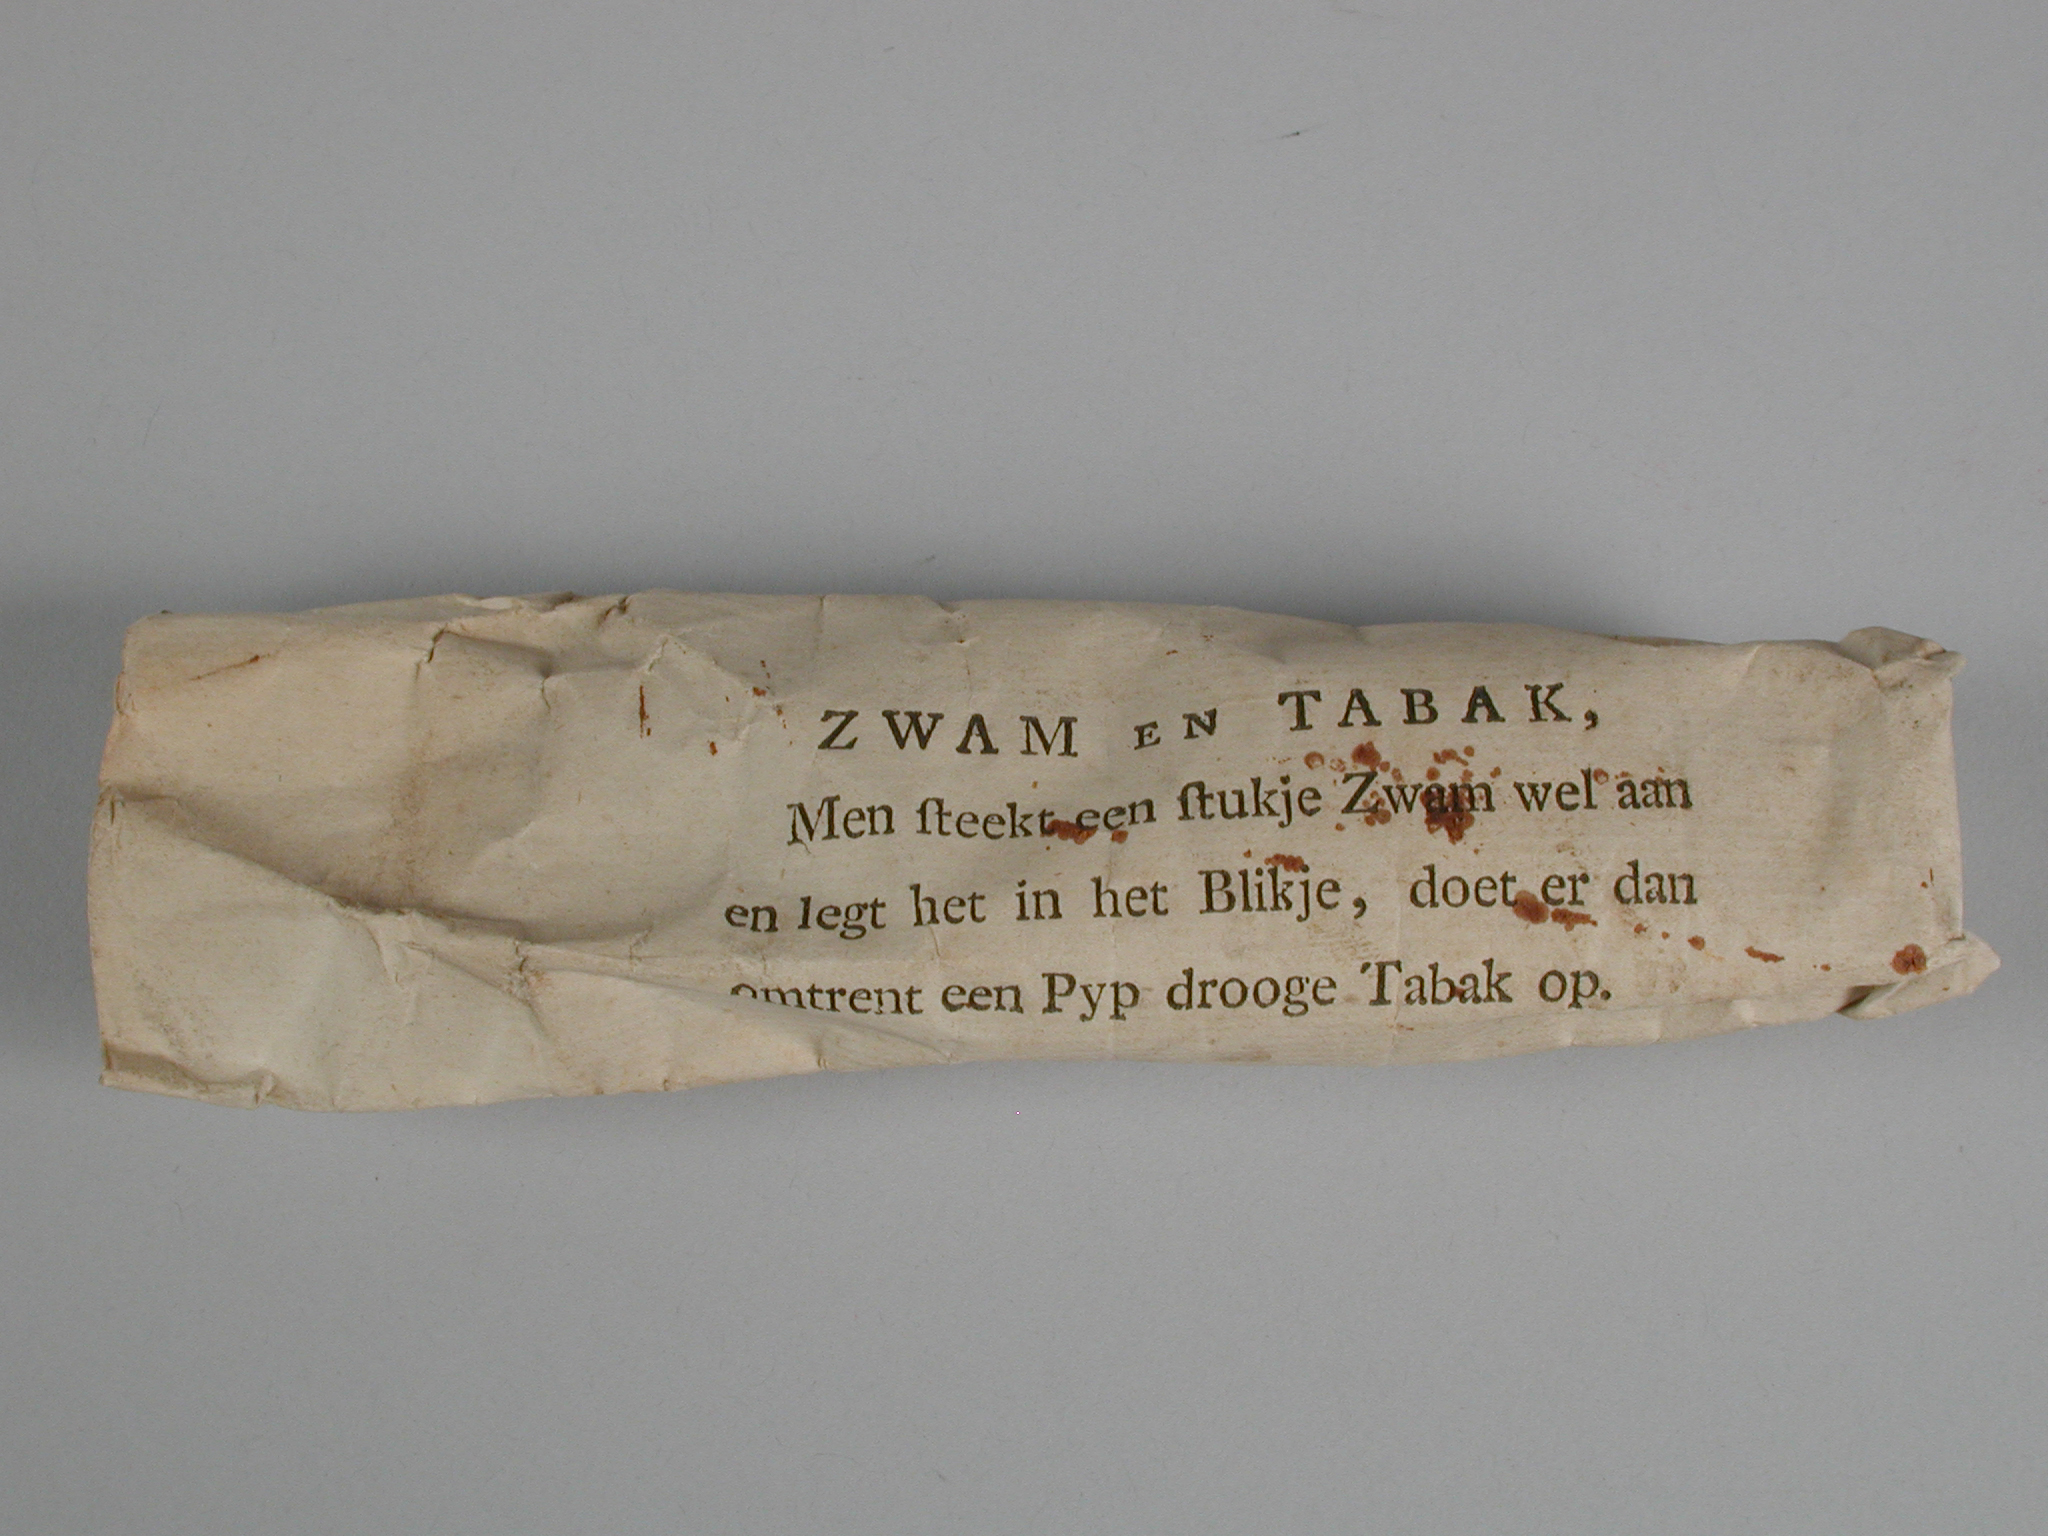 ZWAM EN TABAK,
Men ſteekt een ſtukje Zwam wel aan
en legt het in het Blikje, doet er dan
omtrent een Pyp drooge Tabak op.